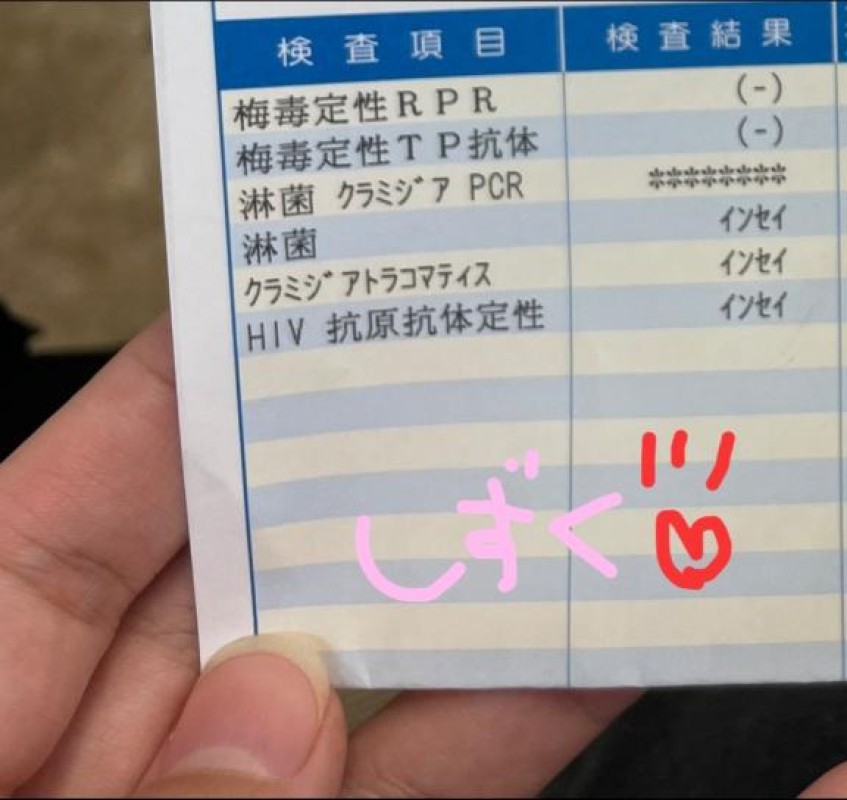 検査項目 検査結果
梅毒定性RPR (-)
梅毒定性TP抗体 (-)
淋菌 ｸﾗﾐｼﾞｱ PCR ********
淋菌 ｲﾝｾｲ
ｸﾗﾐｼﾞｱﾄﾗｺﾏﾃｨｽ ｲﾝｾｲ
HIV 抗原抗体定性 ｲﾝｾｲ
しずく